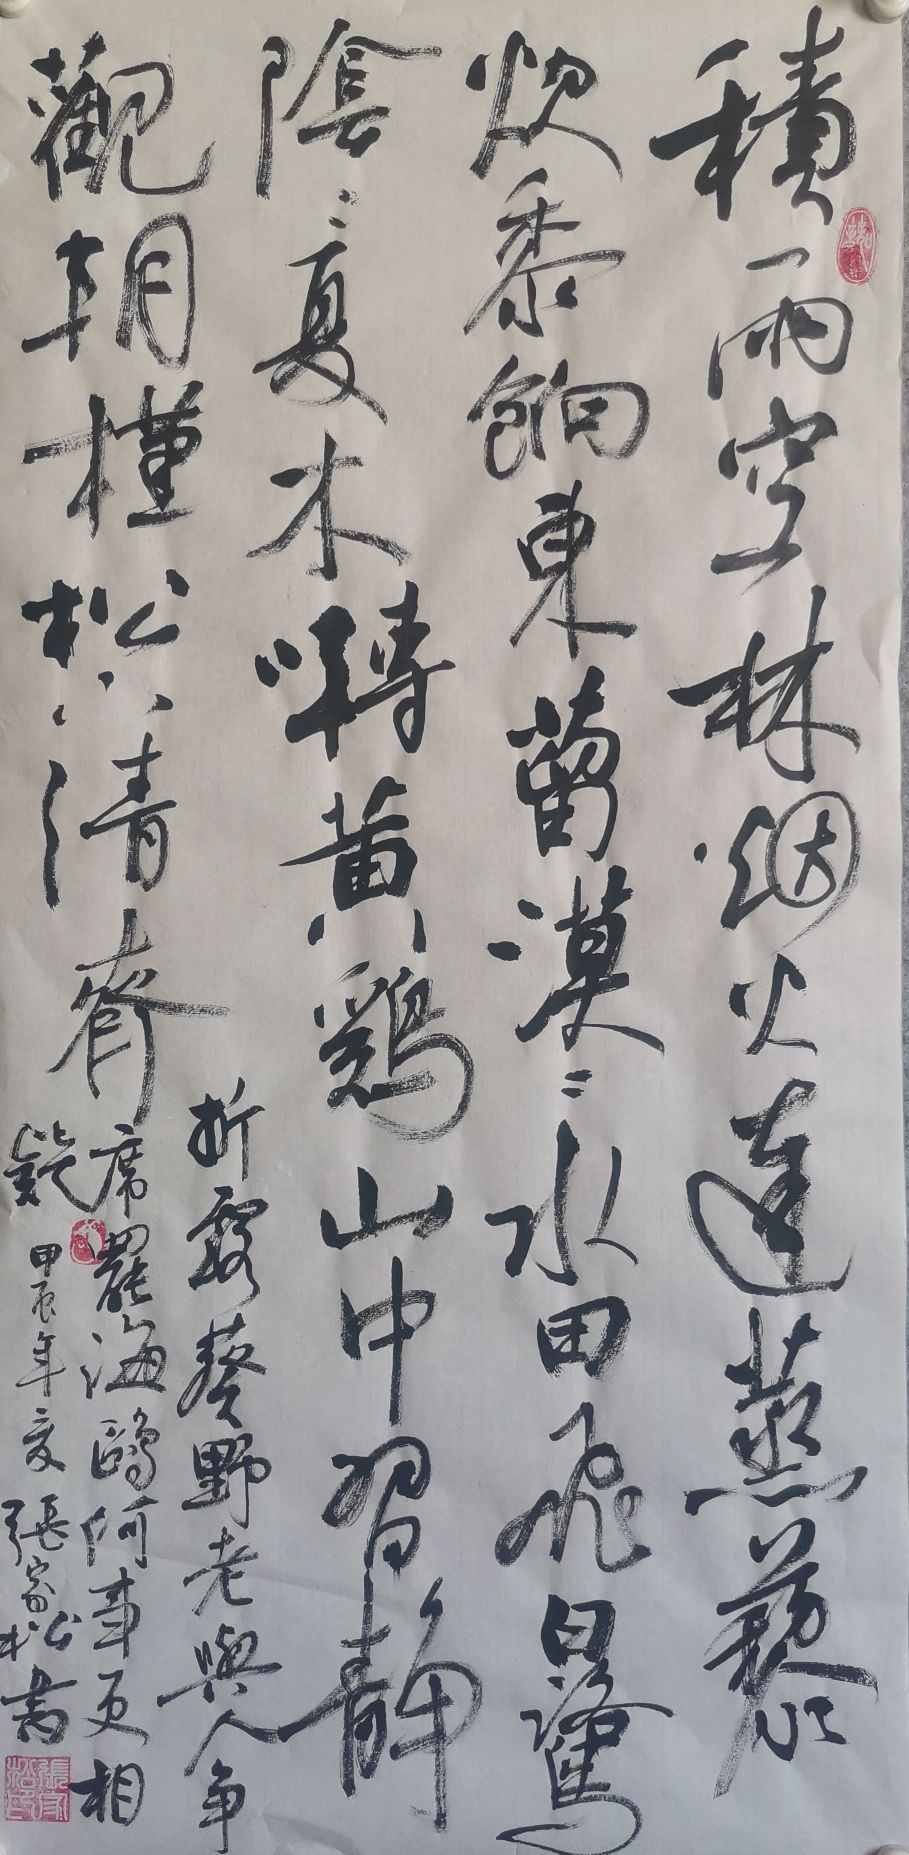 積雨空林烟火遲蒸藜
炊黍餉東菑漠〻水田飛白鷺
陰〻夏木囀黃鸝山中習靜
觀朝槿松下清齋
折露葵野老與人爭
席罷海鷗何事更相
疑 甲辰年夏 張家松書